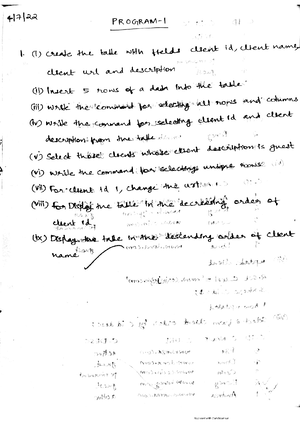 4/7/22
PROGRAM-1
1. (i) Create the table with fields client id, client name,
client url and description
(ii) Insert 5 rows of a data into the table
(iii) Write the command for selecting all rows and columns
(iv) Write the command for selecting client id and client
description from the table
(v) Select those clients whose client description is guest
(vi) Write the command for selecting unique rows
(vii) For client id 1, change the url
(viii) For Display the table in the decreasing order of
client id.
(ix) Display the table in the descending order of client
name